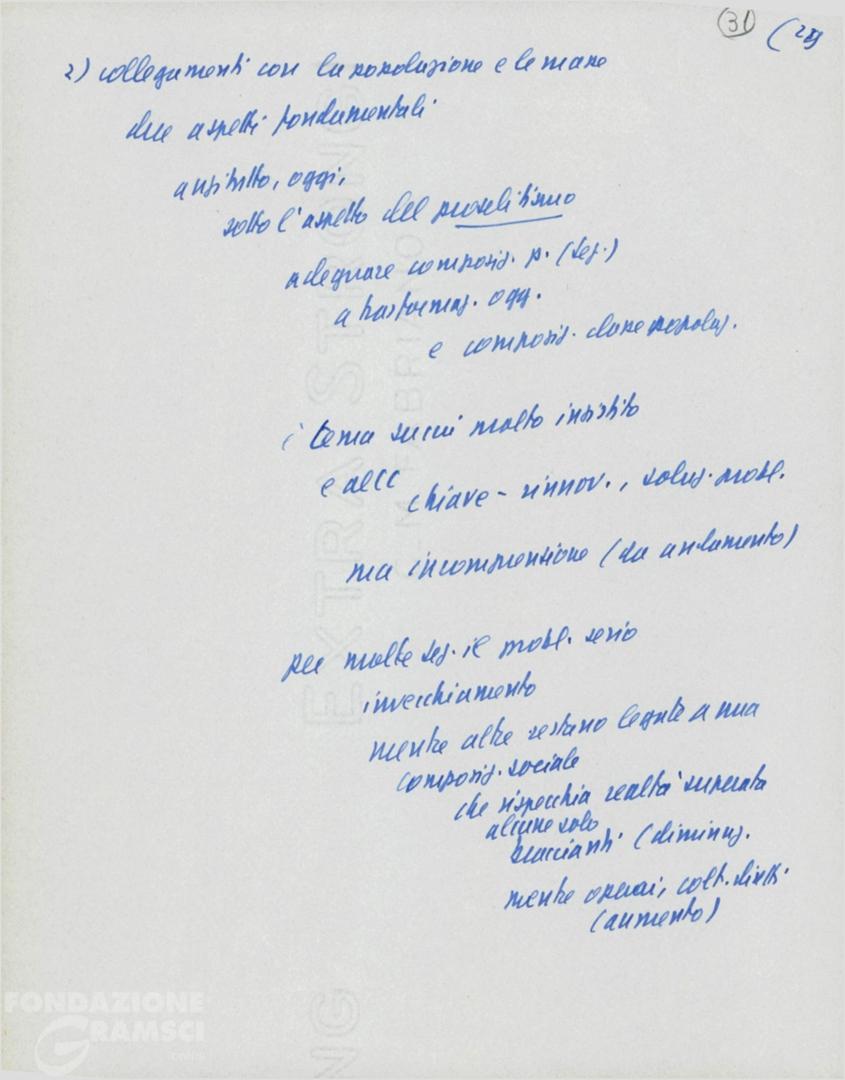 31
(29
2) collegamenti con la popolazione e le masse
due aspetti fondamentali
anzitutto, oggi,
sotto l'aspetto del proselitismo
adeguare composiz. p. (sez.)
a trasformaz. ogg.
e composiz. classe popolaz.
tema su cui molto insistito
e all
chiave - rinnov., soluz. probl.
ma incomprensione (da andamento)
per molte sez. il probl. serio
invecchiamento
mentre altre restano legate a una
composiz. sociale
che rispecchia realtà superata
alcune solo
braccianti (diminuz.
mentre operai, colt. diretti
(aumento)
EXTRA STRONG
FABRIANO
NG
FONDAZIONE
GRAMSCI